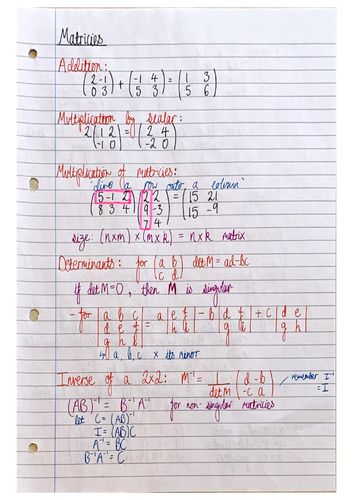 Matricies
Addition:
(2 -1 / 0 3) + (-1 4 / 5 3) = (1 3 / 5 6)
Multiplication by scalar:
2(1 2 / -1 0) = (2 4 / -2 0)
Multiplication of matricies:
a row onto a column'
(5 -1 2 / 8 3 4)(2 2 / 9 -3 / 7 4) = (15 21 / 15 -9)
size: (n×m) × (m×k) = n×k matrix
Determinants: for (a b / c d) det M = ad-bc
if det M = 0, then M is singular
- for |a b c / d e f / g h i| = a|e f / h i| - b|d f / g i| + c|d e / g h|
↳ a, b, c × its minor
Inverse of a 2x2: M⁻¹ = 1/det M (d -b / -c a) remember I⁻¹ = I
(AB)⁻¹ = B⁻¹A⁻¹ for non-singular matricies
let C = (AB)⁻¹
I = (AB)C
A⁻¹ = BC
B⁻¹A⁻¹ = C